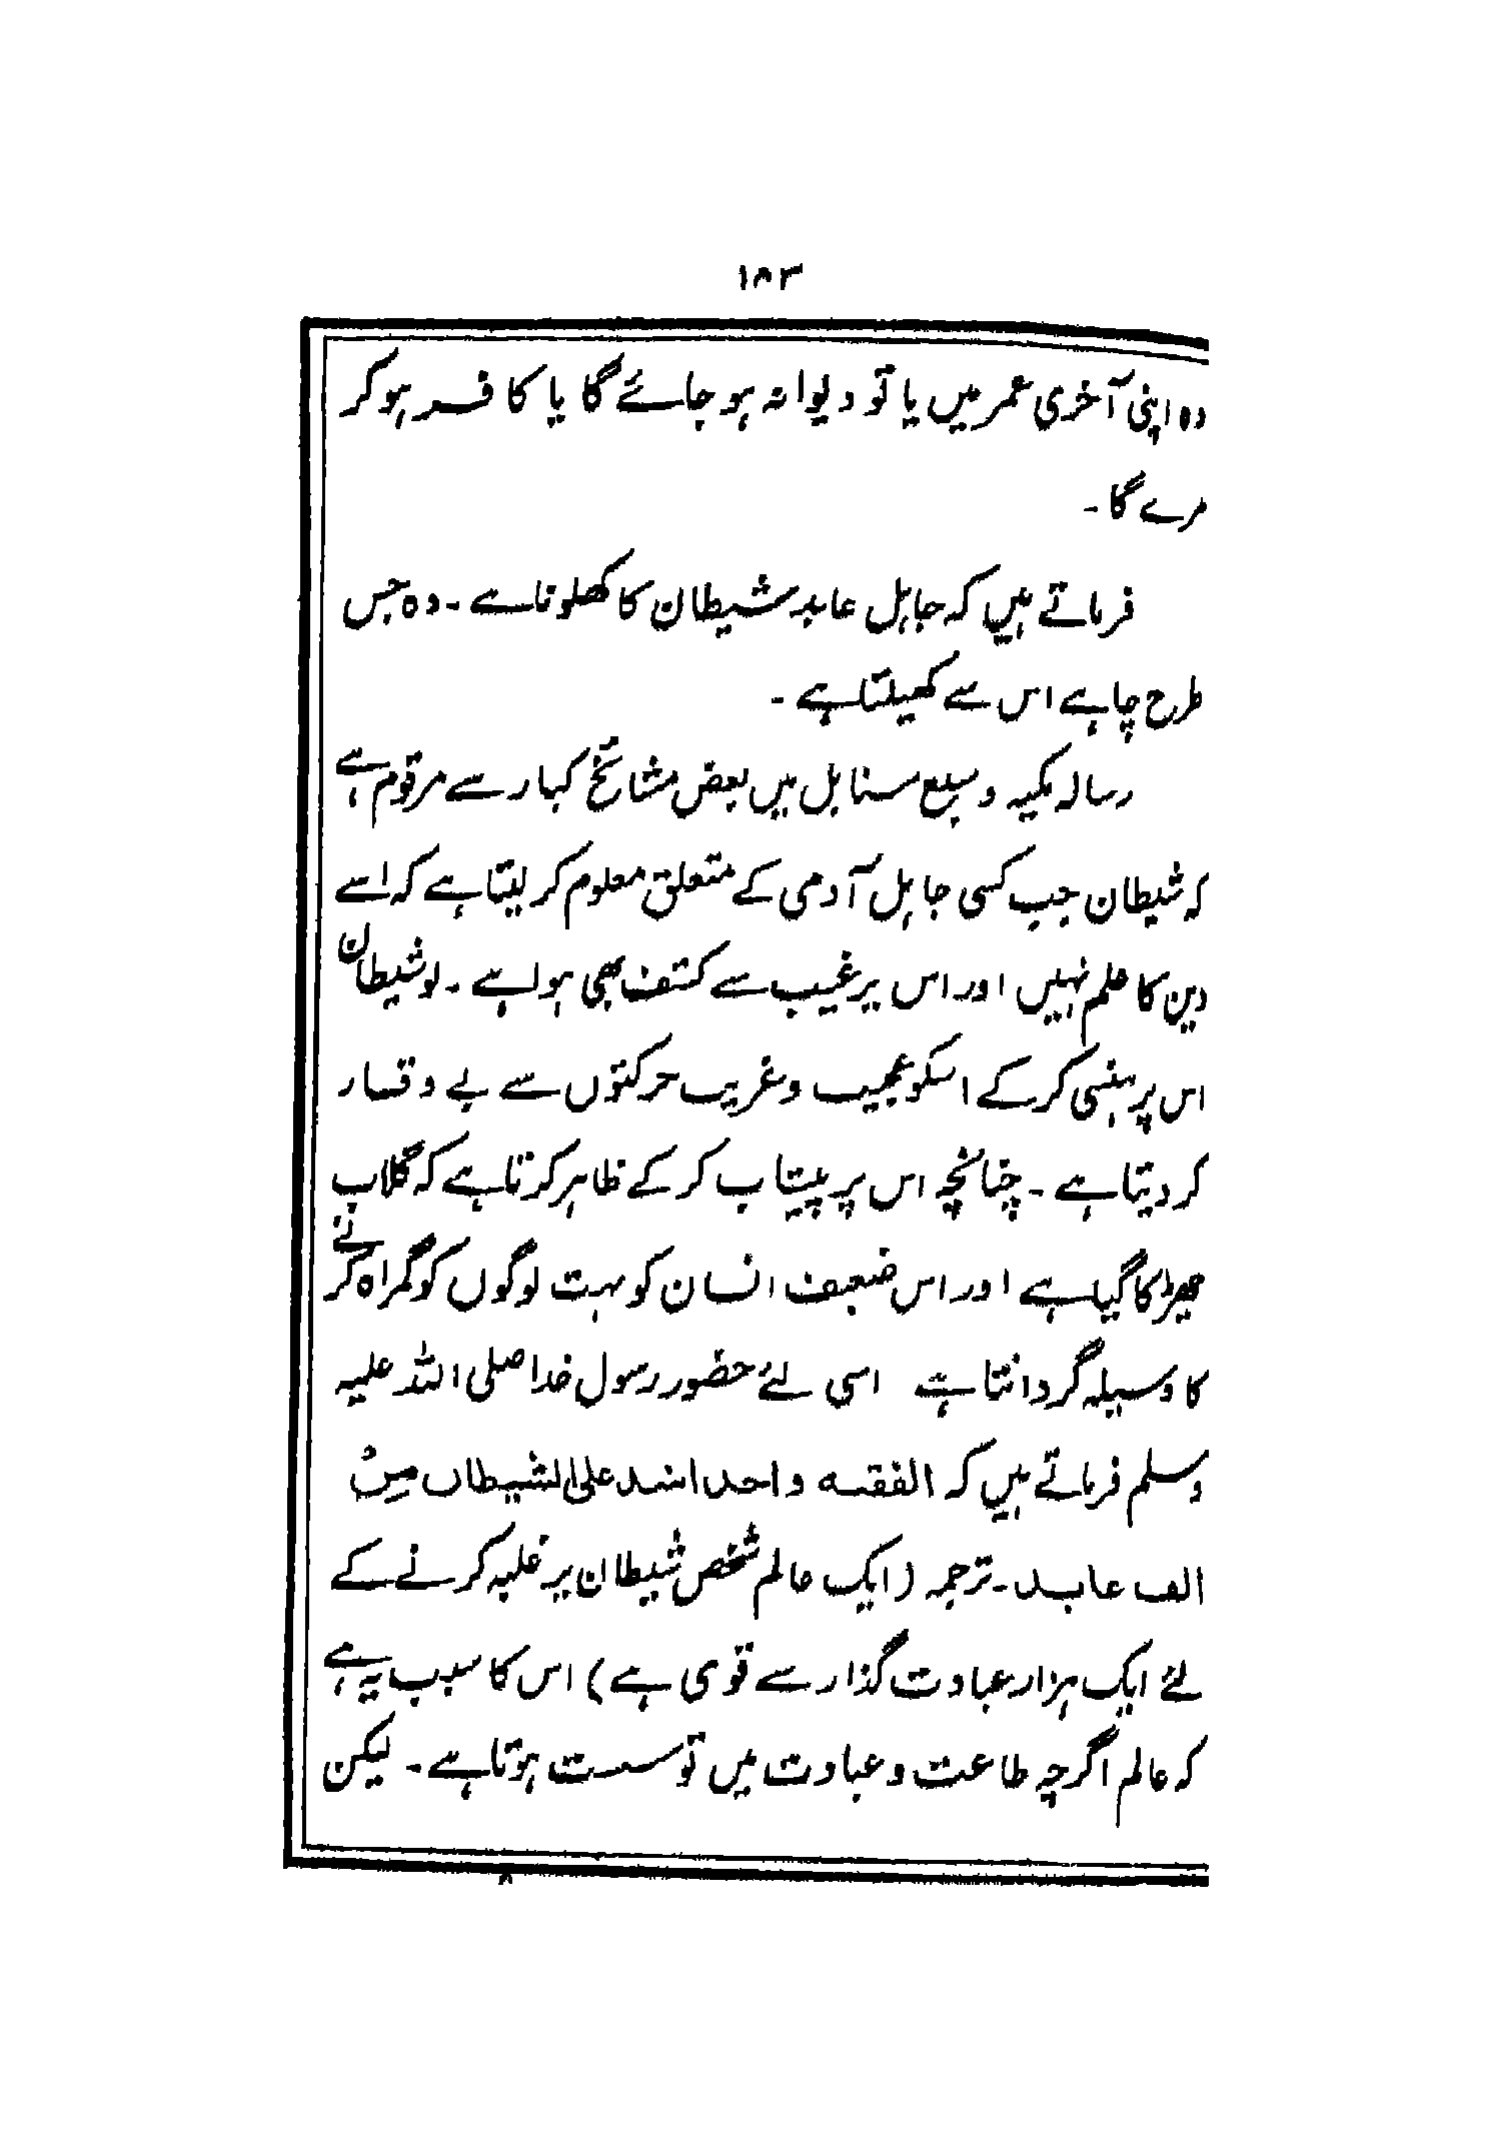 ۱۸۳
وہ اپنی آخری عمر میں یا تو دیوانہ ہو جائے گا یا کافر ہو کر
مرے گا۔
فرماتے ہیں کہ جاہل عابد شیطان کا کھلونا ہے۔ وہ جس
طرح چاہے اس سے کھیلتا ہے۔
رسالہ مکیہ و سبع سنابل میں بعض مشائخ کبار سے مرقوم ہے
کہ شیطان جب کسی جاہل آدمی کے متعلق معلوم کر لیتا ہے کہ اسے
دین کا علم نہیں اور اس پر غیب سے کشف بھی ہوا ہے۔ تو شیطان
اس پر ہنسی کر کے اسکو عجیب و غریب حرکتوں سے بے وقار
کر دیتا ہے۔ چنانچہ اس پر پیشاب کر کے ظاہر کرتا ہے کہ گلاب
چھڑکا گیا ہے اور اس ضعیف انسان کو بہت لوگوں کو گمراہ کرنے
کا وسیلہ گردانتا ہے اسی لئے حضور رسول خدا صلی اللہ علیہ
وسلم فرماتے ہیں کہ الفقیہ واحد اشد علی الشیطان من
الف عابد۔ ترجمہ (ایک عالم شخص شیطان پر غلبہ کرنے کے
لئے ایک ہزار عبادت گذار سے قوی ہے) اس کا سبب یہ ہے
کہ عالم اگرچہ طاعت و عبادت میں تو سست ہوتا ہے۔ لیکن